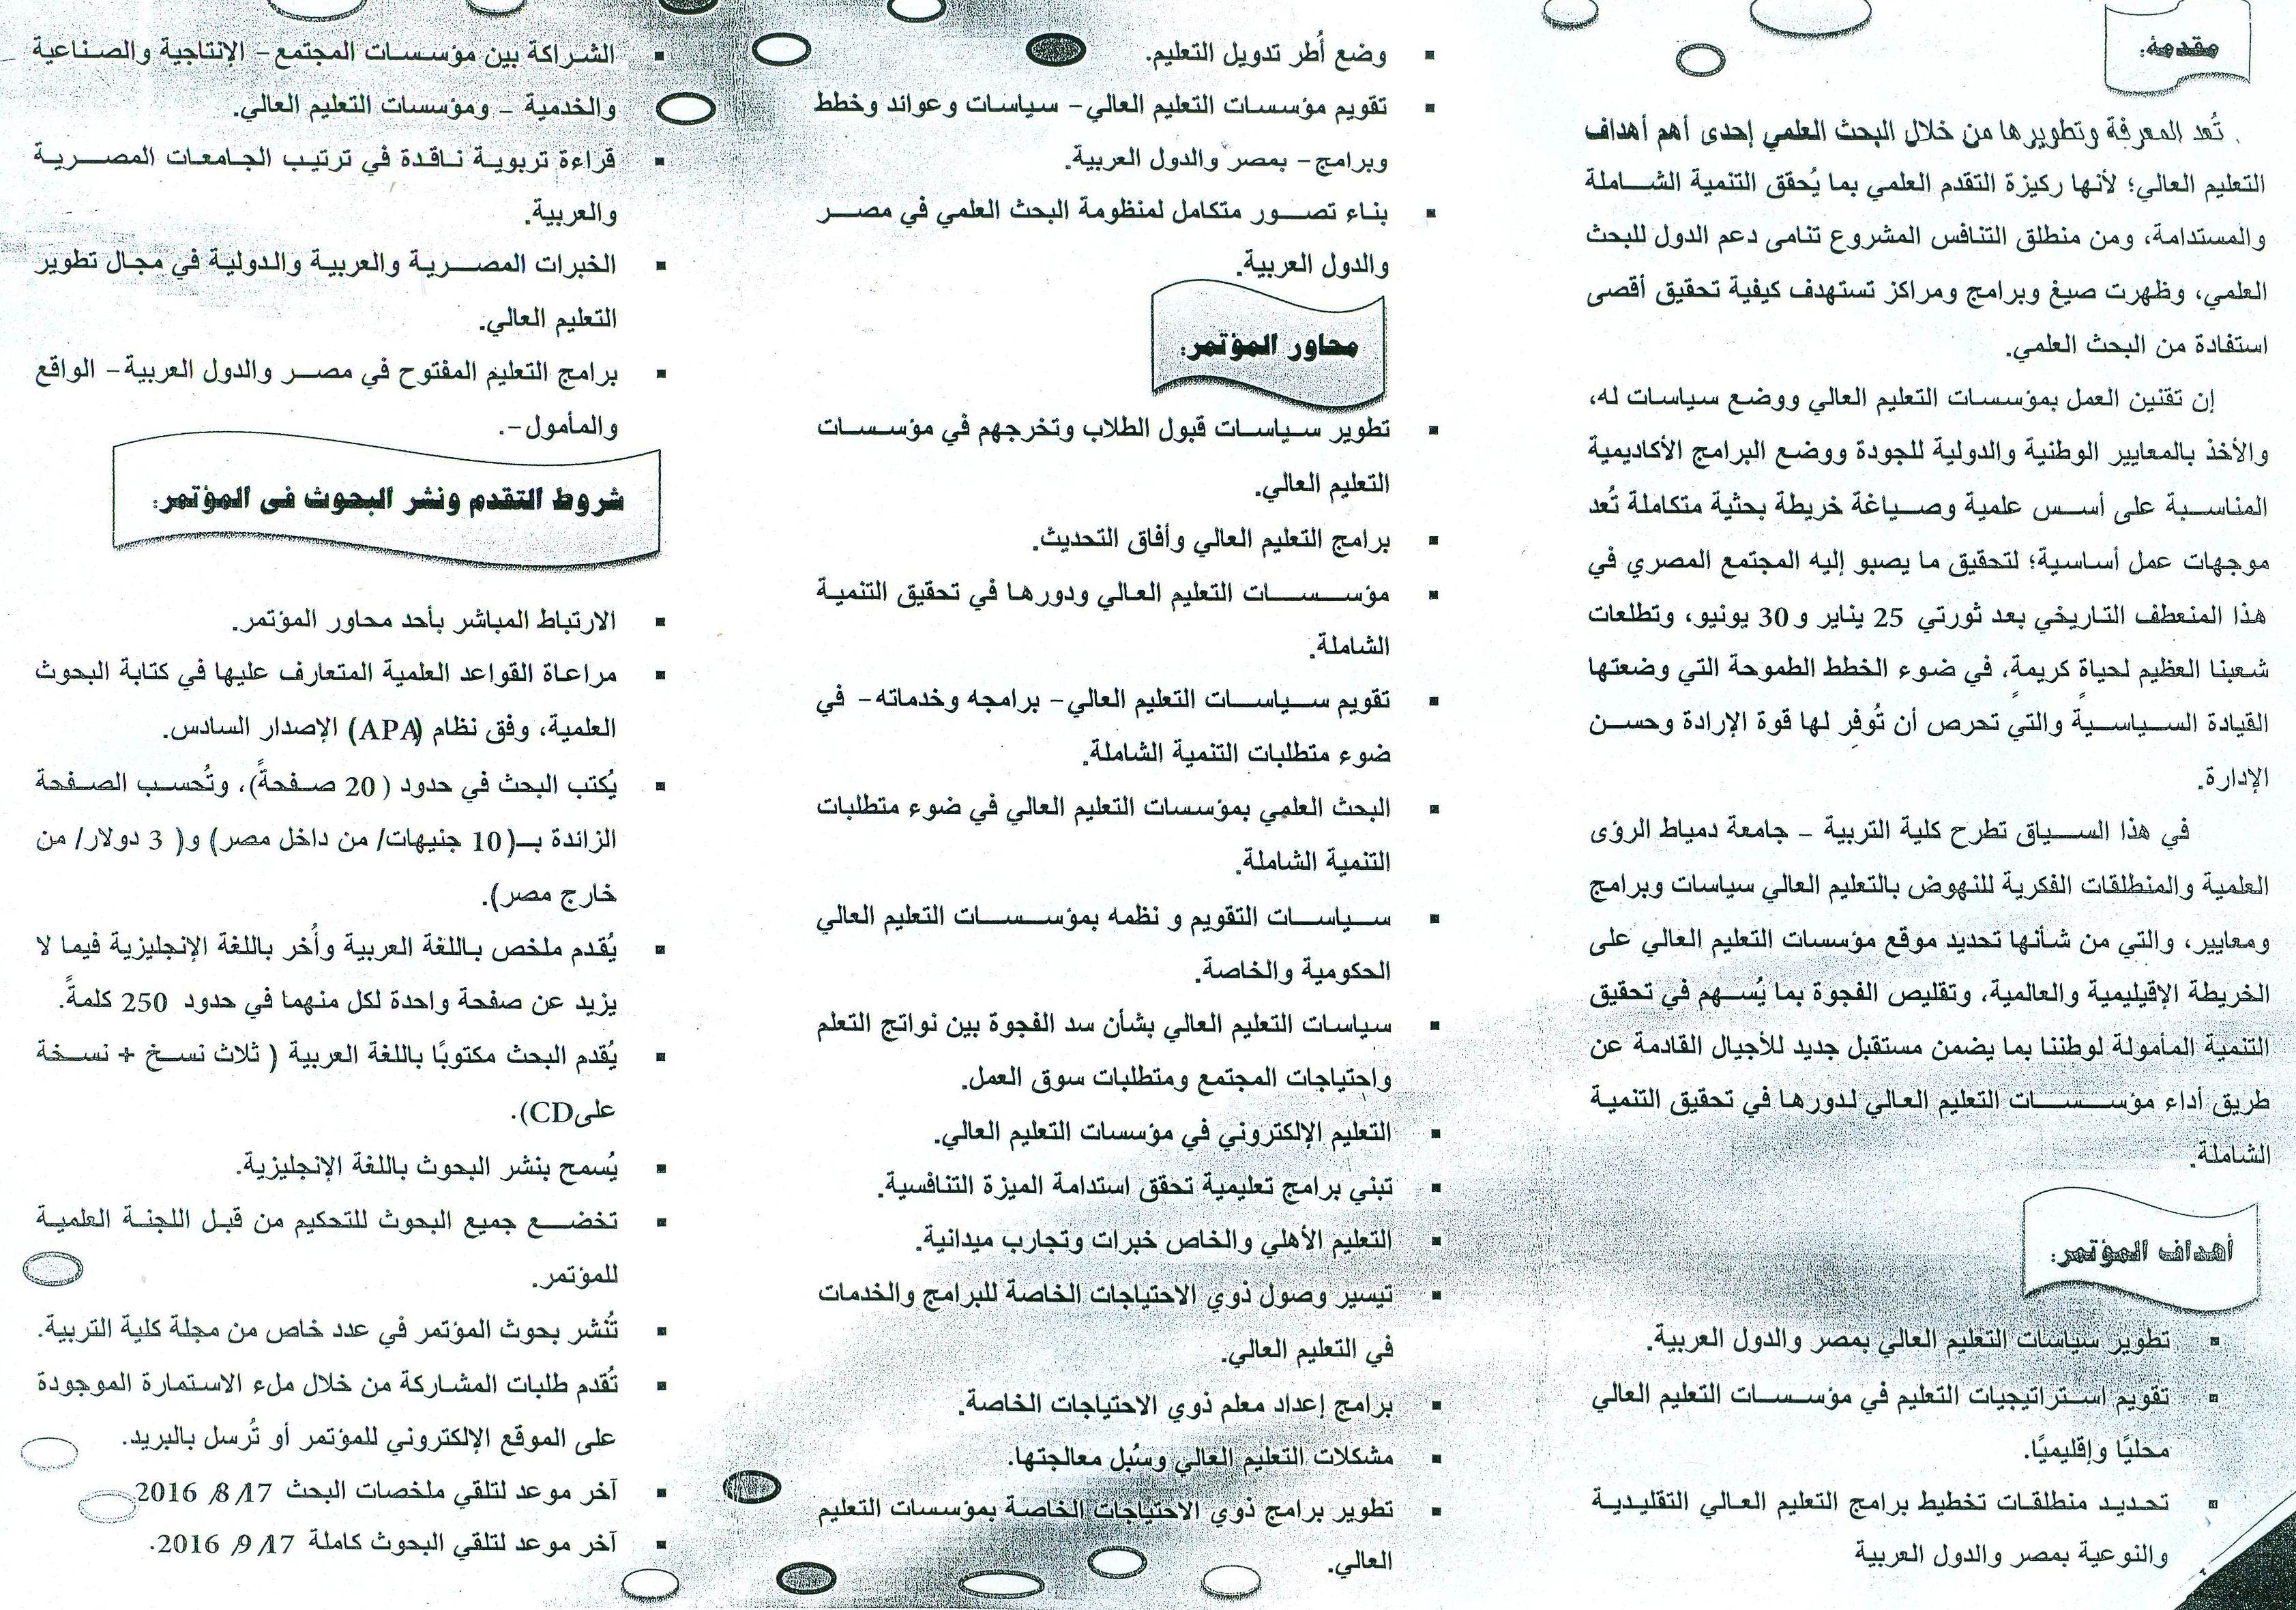 مقدمة:
تُعد المعرفة وتطويرها من خلال البحث العلمي إحدى أهم أهداف
التعليم العالي؛ لأنها ركيزة التقدم العلمي بما يُحقق التنمية الشاملة
والمستدامة، ومن منطلق التنافس المشروع تنامى دعم الدول للبحث
العلمي، وظهرت صيغ وبرامج ومراكز تستهدف كيفية تحقيق أقصى
استفادة من البحث العلمي.
إن تقنين العمل بمؤسسات التعليم العالي ووضع سياسات له،
والأخذ بالمعايير الوطنية والدولية للجودة ووضع البرامج الأكاديمية
المناسبة على أسس علمية وصياغة خريطة بحثية متكاملة تُعد
موجهات عمل أساسية؛ لتحقيق ما يصبو إليه المجتمع المصري في
هذا المنعطف التاريخي بعد ثورتي 25 يناير و30 يونيو، وتطلعات
شعبنا العظيم لحياة كريمةٍ، في ضوء الخطط الطموحة التي وضعتها
القيادة السياسية والتي تحرص أن تُوفِر لها قوة الإرادة وحسن
الإدارة.
في هذا السياق تطرح كلية التربية – جامعة دمياط الرؤى
العلمية والمنطلقات الفكرية للنهوض بالتعليم العالي سياسات وبرامج
ومعايير، والتي من شأنها تحديد موقع مؤسسات التعليم العالي على
الخريطة الإقيليمية والعالمية، وتقليص الفجوة بما يُسهم في تحقيق
التنمية المأمولة لوطننا بما يضمن مستقبل جديد للأجيال القادمة عن
طريق أداء مؤسسات التعليم العالي لدورها في تحقيق التنمية
الشاملة.
أهداف المؤتمر:
▪ تطوير سياسات التعليم العالي بمصر والدول العربية.
▪ تقويم استراتيجيات التعليم في مؤسسات التعليم العالي
محليًا وإقليميًا.
▪ تحديد منطلقات تخطيط برامج التعليم العالي التقليدية
والنوعية بمصر والدول العربية
▪ وضع أُطر تدويل التعليم.
▪ تقويم مؤسسات التعليم العالي- سياسات وعوائد وخطط
وبرامج- بمصر والدول العربية.
▪ بناء تصور متكامل لمنظومة البحث العلمي في مصر
والدول العربية.
محاور المؤتمر:
▪ تطوير سياسات قبول الطلاب وتخرجهم في مؤسسات
التعليم العالي.
▪ برامج التعليم العالي وأفاق التحديث.
▪ مؤسسات التعليم العالي ودورها في تحقيق التنمية
الشاملة.
▪ تقويم سياسات التعليم العالي- برامجه وخدماته- في
ضوء متطلبات التنمية الشاملة.
▪ البحث العلمي بمؤسسات التعليم العالي في ضوء متطلبات
التنمية الشاملة.
▪ سياسات التقويم و نظمه بمؤسسات التعليم العالي
الحكومية والخاصة.
▪ سياسات التعليم العالي بشأن سد الفجوة بين نواتج التعلم
واحتياجات المجتمع ومتطلبات سوق العمل.
▪ التعليم الإلكتروني في مؤسسات التعليم العالي.
▪ تبني برامج تعليمية تحقق استدامة الميزة التنافسية.
▪ التعليم الأهلي والخاص خبرات وتجارب ميدانية.
▪ تيسير وصول ذوي الاحتياجات الخاصة للبرامج والخدمات
في التعليم العالي.
▪ برامج إعداد معلم ذوي الاحتياجات الخاصة.
▪ مشكلات التعليم العالي وسُبل معالجتها.
▪ تطوير برامج ذوي الاحتياجات الخاصة بمؤسسات التعليم
العالي.
▪ الشراكة بين مؤسسات المجتمع- الإنتاجية والصناعية
والخدمية – ومؤسسات التعليم العالي.
▪ قراءة تربوية ناقدة في ترتيب الجامعات المصرية
والعربية.
▪ الخبرات المصرية والعربية والدولية في مجال تطوير
التعليم العالي.
▪ برامج التعليم المفتوح في مصر والدول العربية- الواقع
والمأمول-.
شروط التقدم ونشر البحوث فى المؤتمر:
▪ الارتباط المباشر بأحد محاور المؤتمر.
▪ مراعاة القواعد العلمية المتعارف عليها في كتابة البحوث
العلمية، وفق نظام (APA) الإصدار السادس.
▪ يُكتب البحث في حدود ( 20 صفحةً)، وتُحسب الصفحة
الزائدة بـ(10 جنيهات/ من داخل مصر) و( 3 دولار/ من
خارج مصر).
▪ يُقدم ملخص باللغة العربية وأُخر باللغة الإنجليزية فيما لا
يزيد عن صفحة واحدة لكل منهما في حدود 250 كلمةً.
▪ يُقدم البحث مكتوبًا باللغة العربية ( ثلاث نسخ + نسخة
علىCD).
▪ يُسمح بنشر البحوث باللغة الإنجليزية.
▪ تخضع جميع البحوث للتحكيم من قبل اللجنة العلمية
للمؤتمر.
▪ تُنشر بحوث المؤتمر في عدد خاص من مجلة كلية التربية.
▪ تُقدم طلبات المشاركة من خلال ملء الاستمارة الموجودة
على الموقع الإلكتروني للمؤتمر أو تُرسل بالبريد.
▪ آخر موعد لتلقي ملخصات البحث 17/ 8/ 2016
▪ آخر موعد لتلقي البحوث كاملة 17/ 9/ 2016.